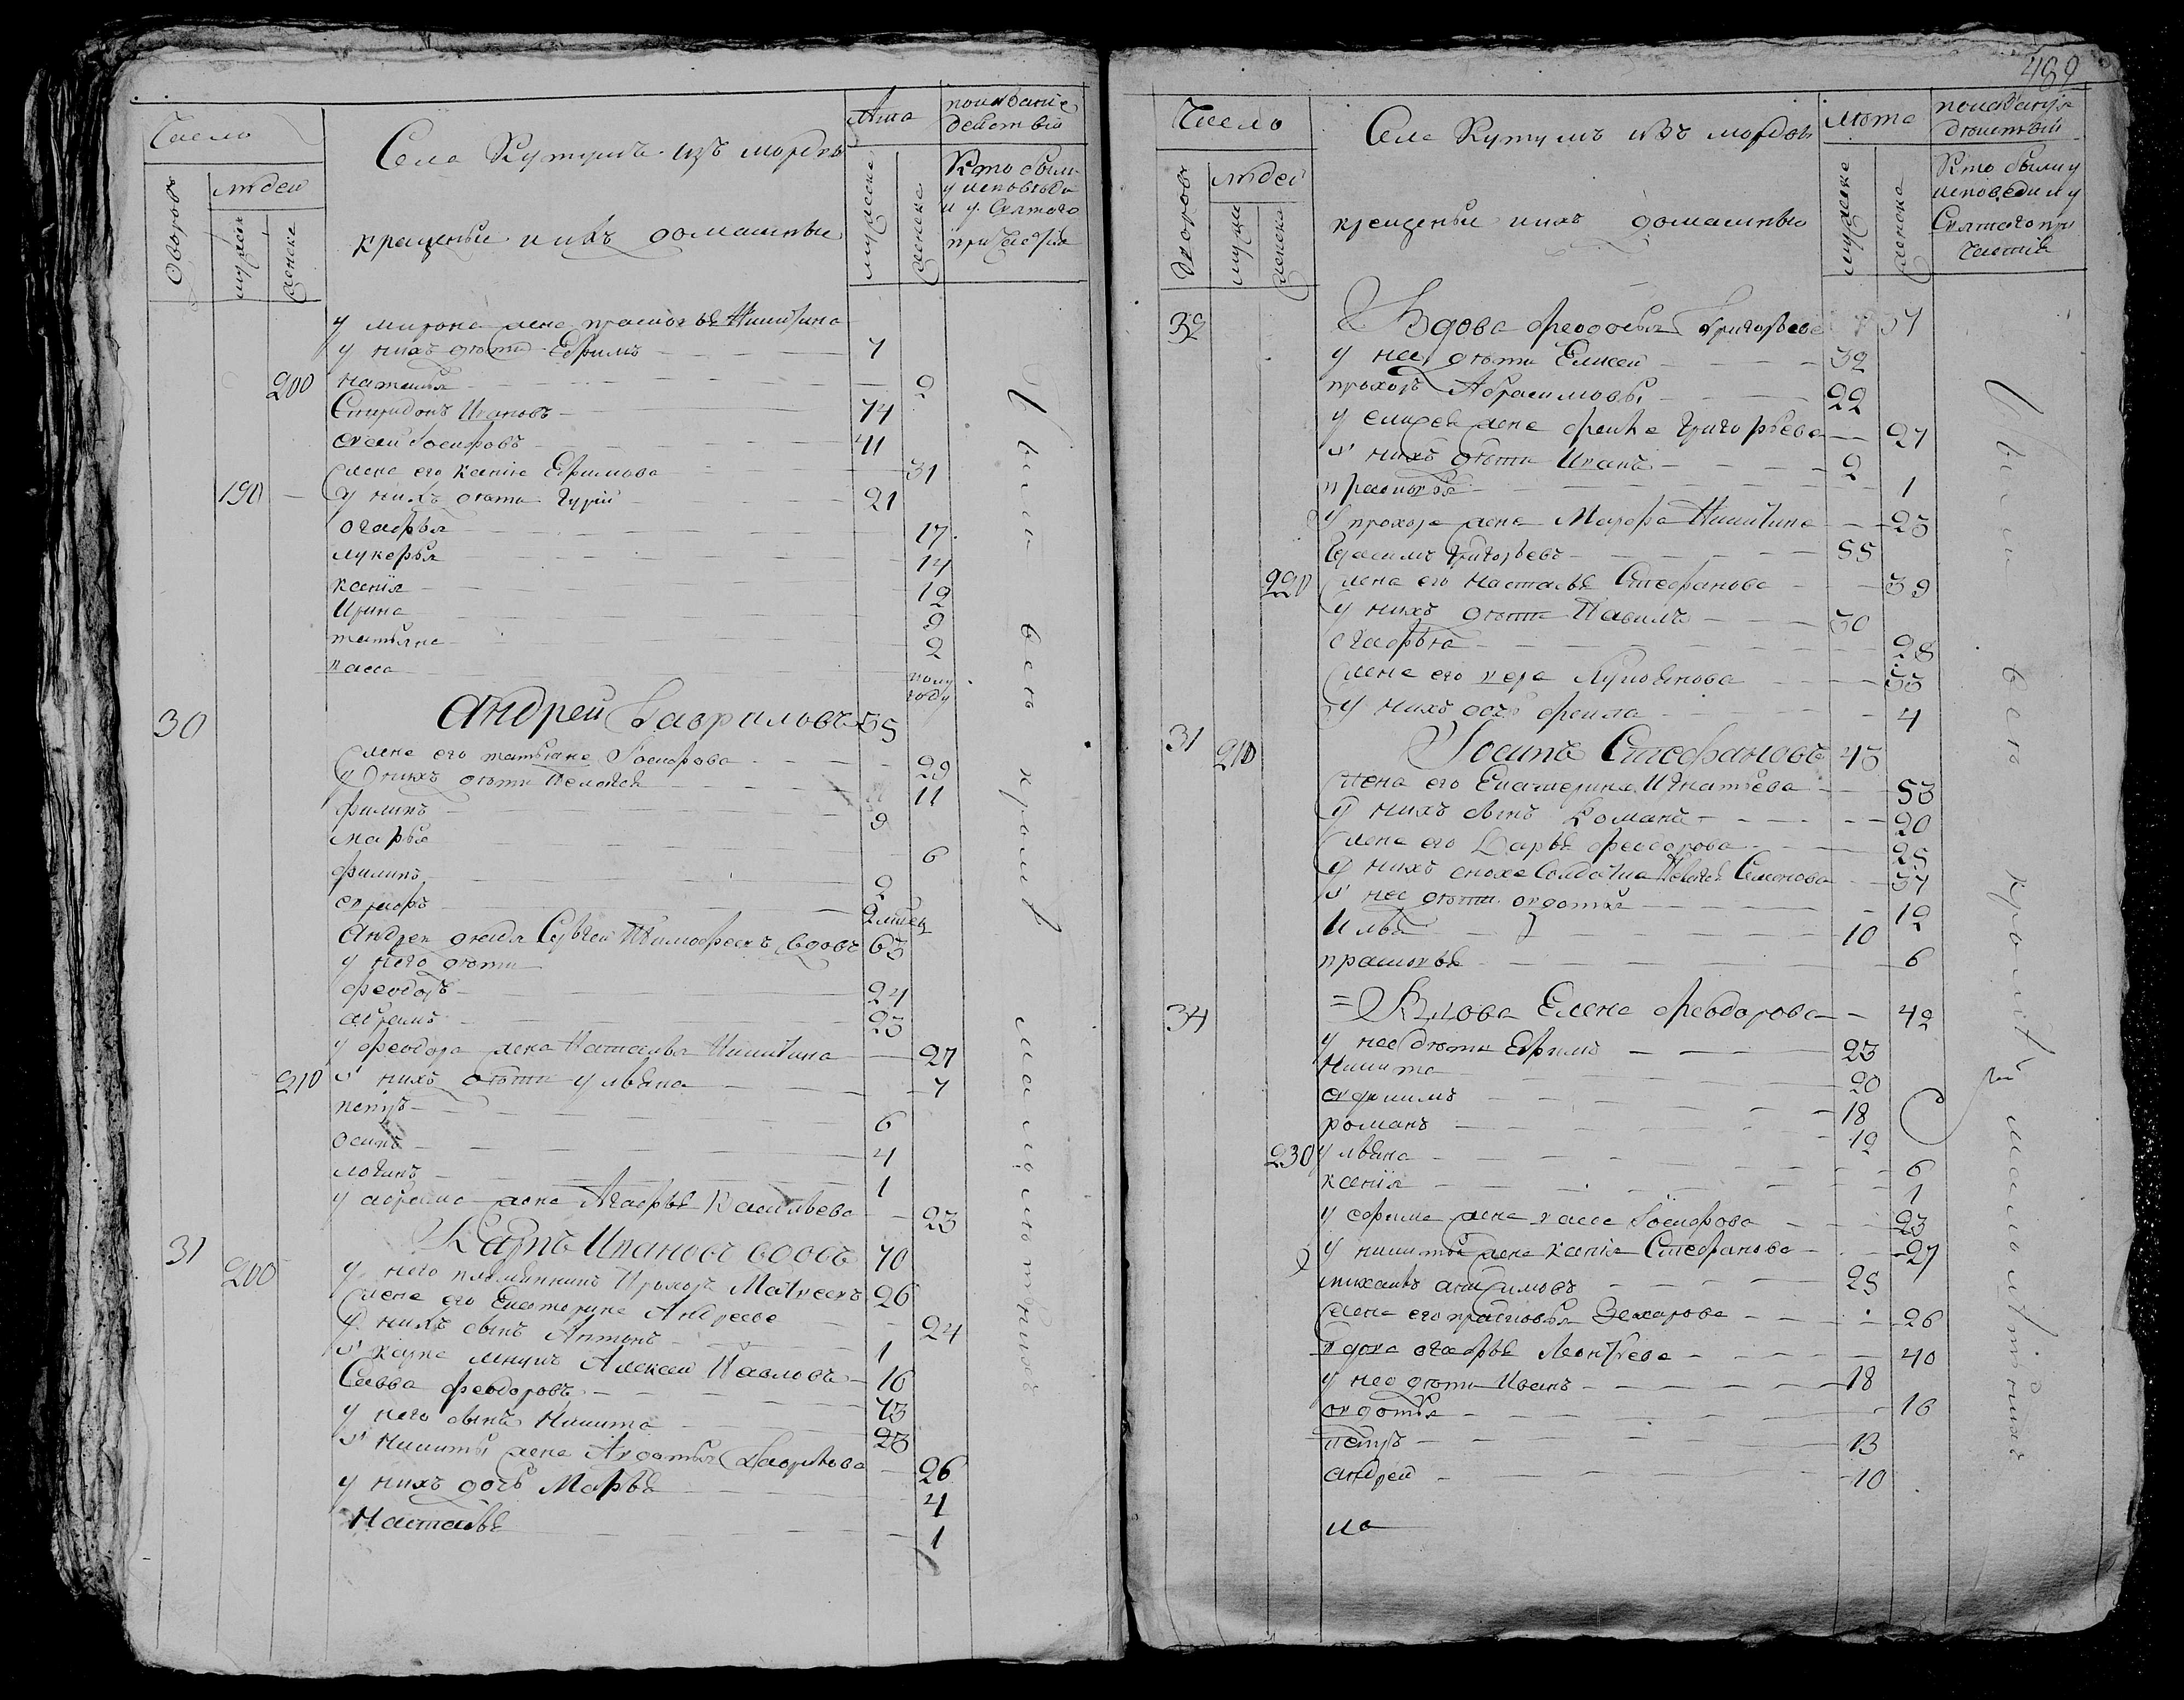 Число
Села Кутумъ изъ мордвы
Лета
показание действъ
дворовъ
людей
мужеска
женска
крещеные и ихъ домашныя
мужеска
женска
Кто были
у исповеди
и у Святого
причастия
у мирона жена прасковья Никитина
у нихъ дети Ефимъ 7
200 наталья 2
Спиридонъ Ивановъ 74
Осифовъ 41
жена его ксения Ефимова 31
190 у нихъ дети Гурiй 21
огафья 17
лукерья 14
ксенiя 12
Ирина 9
татьяна 2
васса полугоду
30 Андрей Гавриловъ 35
жена его татьяна Iосифова 29
у нихъ дети Пелагея 11
филипъ 9
марья 6
филипъ 2
2 месец
Андрея дядя Сергей Тимофеевъ вдовъ 63
у него дети
феодоръ 24
абрамъ 23
у феодора жена Наталья Никитина 27
210 у нихъ дети ульяна 7
петръ 6
осипъ 4
логинъ 1
у абрама жена Агафья Васильева 23
31 Карпъ Ивановъ вдовъ 70
200 у него племянникъ Прохоръ Матвеевъ 26
жена его Екатерина Андреева 24
у нихъ сынъ Антонъ 1
у карпа Алексей Павловъ 16
Савва феодоровъ 73
у него сынъ Никита 23
у Никиты жена Авдотья Гаврилова 26
у нихъ дочь Марья 4
Наталья 1
были все кроме малолетныхъ
489
Число
Села Кутумъ изъ мордвы
Лета
показания действий
дворовъ
людей
мужска
женска
крещеныя ихъ домашныя
мужеска
женска
Кто были у
исповеди и у
Святаго при
частия
32 Вдова феодосья Григорьева 57
у нее дети Елисей 32
прохоръ Абрасимовы 22
у елисея жена фекла Григорьева 27
у нихъ дети Иванъ 2
прасковья 1
у прохора жена Марфа Никитина 23
Герасимъ Григорьевъ 55
220 жена его Наталья Стефанова 39
у нихъ дети Павилъ 30
огафья 28
жена его вера Лукоянова 33
у нихъ дочь фекла 4
31 210 Iосипъ Стефановъ 43
жена его Екатерина Игнатьева 53
у нихъ сынъ Романъ 20
жена его Дарья феодорова 25
у нихъ сноха Солдатка Пелагея Семенова 37
у нее дети овдотья 12
Илья 10
прасковья 6
34 Вдова Елена феодорова 42
у нее дети Ефимъ 23
Никита 20
ефимъ 18
романъ 12
230 ульяна 6
ксенiя 1
у ефима жена васса Iосифова 23
у никиты жена ксенiя Стефанова 27
михаилъ анисимовъ 25
жена его прасковья Захарова 26
вдова огафья Леонтьева 40
у нее дети Иванъ 18
овдотья 16
петръ 13
андрей 10
на
были все кроме малолетныхъ